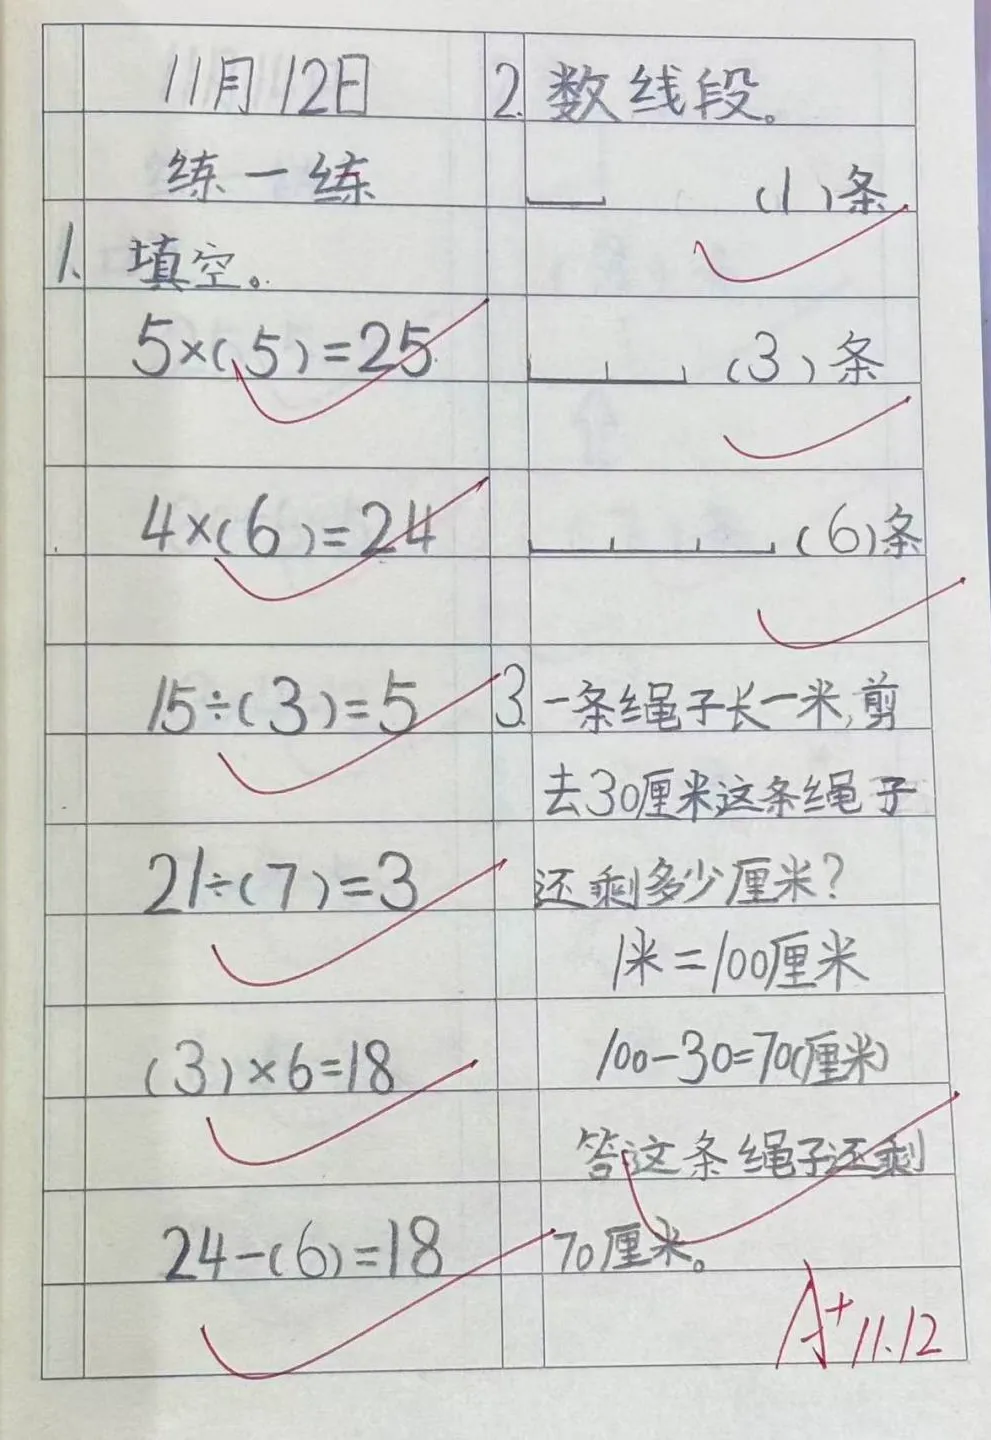 11月12日
练一练
1. 填空。
5×(5)=25
4×(6)=24
15÷(3)=5
21÷(7)=3
(3)×6=18
24-(6)=18
2. 数线段。
(1)条
(3)条
(6)条
3. 一条绳子长一米,剪
去30厘米这条绳子
还剩多少厘米?
1米=100厘米
100-30=70(厘米)
答这条绳子还剩
70厘米。
A+ 11.12